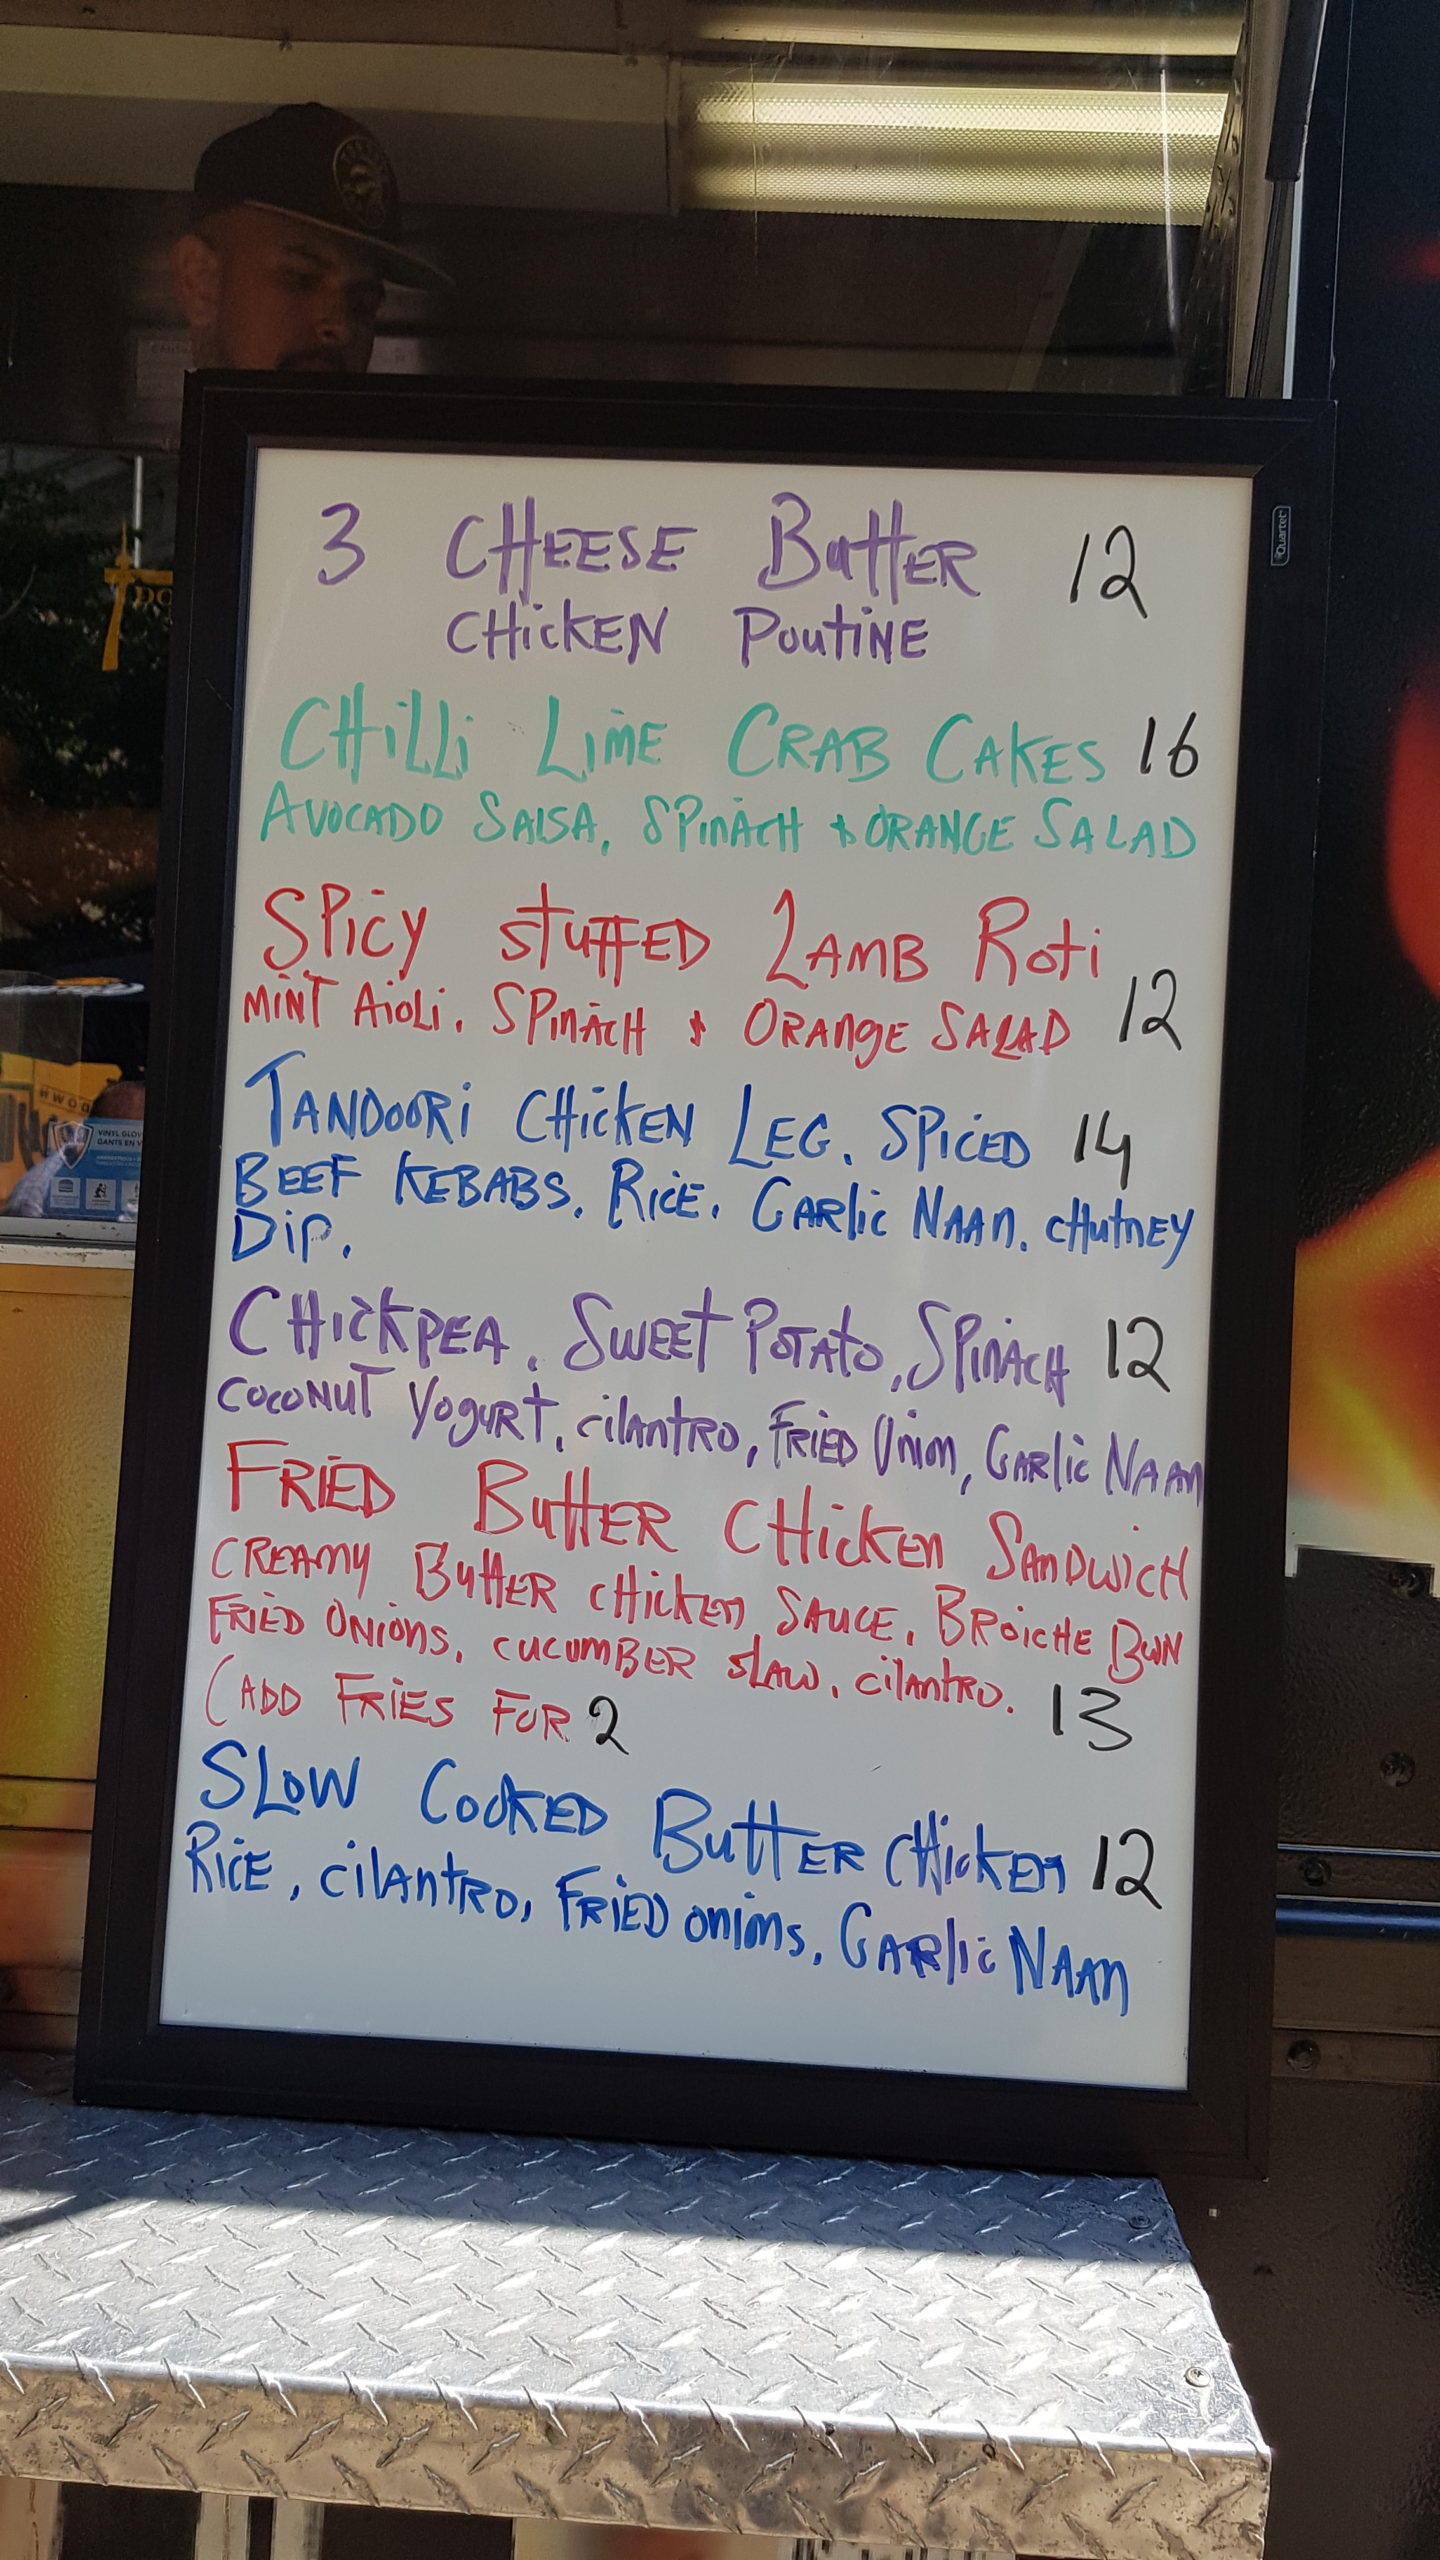 3 CHEESE BUTTER 12
CHICKEN POUTINE
CHILLI LIME CRAB CAKES 16
AVOCADO SALSA, SPINACH & ORANGE SALAD
SPICY STUFFED LAMB ROTI
MINT AIOLI. SPINACH & ORANGE SALAD 12
TANDOORI CHICKEN LEG. SPICED 14
BEEF KEBABS. RICE. GARLIC NAAN. CHUTNEY
DIP.
CHICKPEA. SWEET POTATO, SPINACH 12
COCONUT YOGURT, CILANTRO, FRIED ONION, GARLIC NAAN
FRIED BUTTER CHICKEN SANDWICH
CREAMY BUTTER CHICKEN SAUCE. BROICHE BUN
FRIED ONIONS. CUCUMBER SLAW. CILANTRO. 13
(ADD FRIES FOR 2
SLOW COOKED BUTTER CHICKEN 12
RICE, CILANTRO, FRIED ONIONS. GARLIC NAAN
Quartet